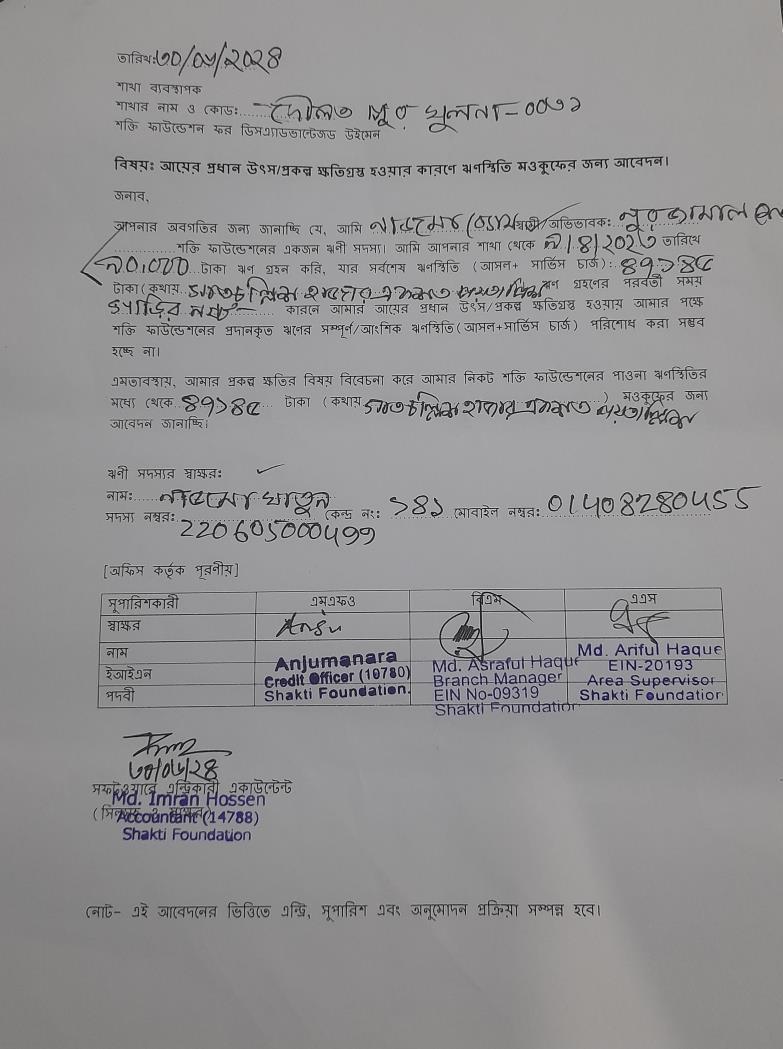 তারিখঃ৩০/০৬/২০২৪
শাখা ব্যবস্থাপক
শাখার নাম ও কোডঃ দৌলত পুর খুলনা-০০৩১
শক্তি ফাউন্ডেশন ফর ডিসএ্যাডভান্টেজড উইমেন
বিষয়ঃ আয়ের প্রধান উৎস/প্রকল্প ক্ষতিগ্রস্থ হওয়ার কারণে ঋণস্থিতি মওকুফের জন্য আবেদন।
জনাব,
আপনার অবগতির জন্য জানাচ্ছি যে, আমি স্বামী/অভিভাবক: নুরজামাল
শক্তি ফাউন্ডেশনের একজন ঋণী সদস্য। আমি আপনার শাখা থেকে ৯/৪/২০২৩ তারিখে
৯০,০০০ টাকা ঋণ গ্রহন করি, যার সর্বশেষ ঋণস্থিতি (আসল+ সার্ভিস চার্জ): ৪৭১৪৫
টাকা(কথায় সাতচল্লিশ হাজার একশত পয়তাল্লিশ ঋণ গ্রহণের পরবর্তী সময়
কারনে আমার আয়ের প্রধান উৎস/প্রকল্প ক্ষতিগ্রস্থ হওয়ায় আমার পক্ষে
শক্তি ফাউন্ডেশনের প্রদানকৃত ঋণের সম্পূর্ণ/আংশিক ঋণস্থিতি(আসল+সার্ভিস চার্জ) পরিশোধ করা সম্ভব
হচ্ছে না।
এমতাবস্থায়, আমার প্রকল্প ক্ষতির বিষয় বিবেচনা করে আমার নিকট শক্তি ফাউন্ডেশনের পাওনা ঋণস্থিতির
মধ্যে থেকে ৪৭১৪৫ টাকা (কথায় সাতচল্লিশ হাজার একশত পয়তাল্লিশ) মওকুফের জন্য
আবেদন জানাচ্ছি।
ঋণী সদস্যর স্বাক্ষরঃ
নাম: খাতুন
সদস্য নম্বর: কেন্দ্র নং: ১৪১ মোবাইল নম্বর: 01408280455
220605000499
[অফিস কর্তৃক পূরণীয়]
সুপারিশকারী এমএফও বিএম এএস
স্বাক্ষর Anju
নাম Anjumanara Md. Asraful Haque Md. Ariful Haque
ইআইএন Credit Officer (10780) Branch Manager EIN-20193
পদবী Shakti Foundation. EIN No-09319 Area Supervisor
Shakti Foundation Shakti Foundation
৩০/০৬/২৪
সফটওয়ারে এন্ট্রিকারী একাউন্টেন্ট
Md. Imran Hossen
Accountant (14788)
Shakti Foundation
নোট- এই আবেদনের ভিত্তিতে এন্ট্রি, সুপারিশ এবং অনুমোদন প্রক্রিয়া সম্পন্ন হবে।